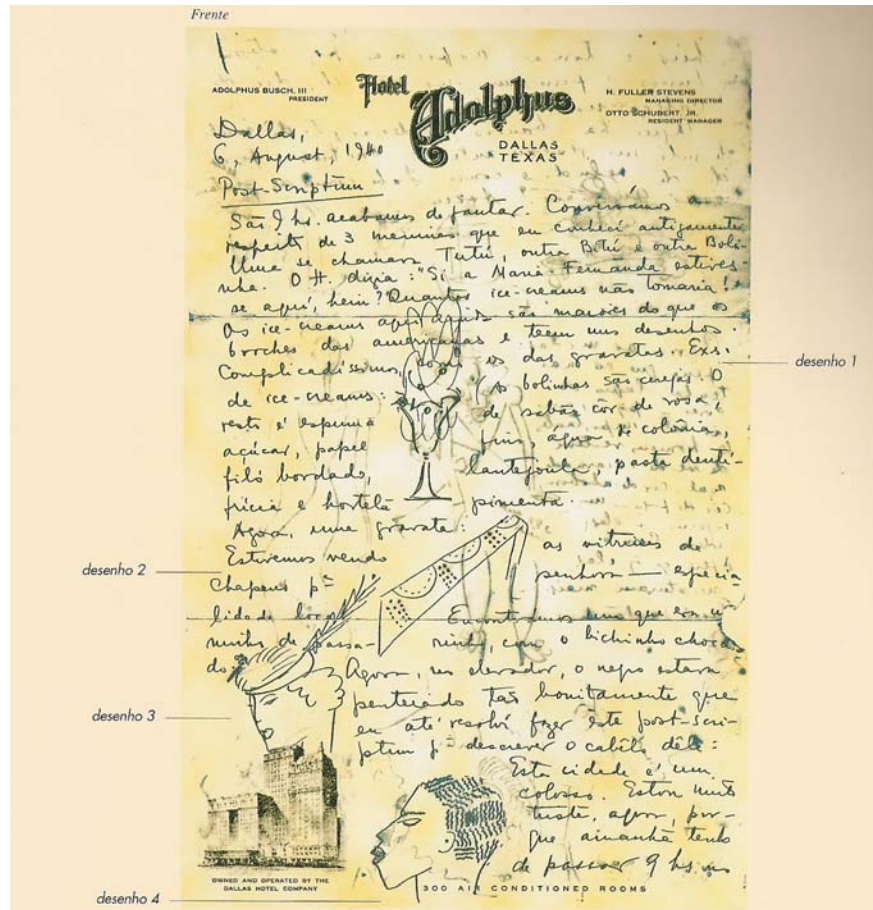 Frente
Hotel Adolphus
DALLAS
TEXAS
ADOLPHUS BUSCH, III
PRESIDENT
H. FULLER STEVENS
MANAGING DIRECTOR
OTTO SCHUBERT, JR.
RESIDENT MANAGER
Dallas,
6, August, 1940
Post-Scriptum
São 9 hs. acabamos de jantar. Conversámos a
respeito de 3 meninas que eu conhecí antigamente
Uma se chamava Tutú, outra Bitú e outra Boli-
nha. O H. dizia: "Si a Maria Fernanda estives-
se aqui, hein? Quantos ice-creams não tomaria!
Os ice-creams aqui são maiores do que os
broches das americanas e teem uns desenhos
complicadíssimos, como os das gravatas. Exs.
desenho 1
de ice-creams: (As bolinhas são cerejas. O
resto é espuma de sabão côr de rosa,
açúcar, papel fino, água de colônia,
filó bordado, lantejoula, pasta dentí-
frícia e hortelã - pimenta.
Agora, uma gravata:
Estivemos vendo as vitrines de
desenho 2
chapeus pª senhora — especia-
lidade local Encontramos um que era um
ninho de passa- rinho, com o bichinho choca-
do. Agora, no elevador, o negro estava
penteado tão bonitamente que
desenho 3
eu até resolví fazer este post-scri-
ptum pª descrever o cabêlo dêle:
Esta cidade é um
colosso. Estou muito
triste, agora, por-
que amanhã tenho
de passar 9 hs no
OWNED AND OPERATED BY THE
DALLAS HOTEL COMPANY
300 AIR CONDITIONED ROOMS
desenho 4